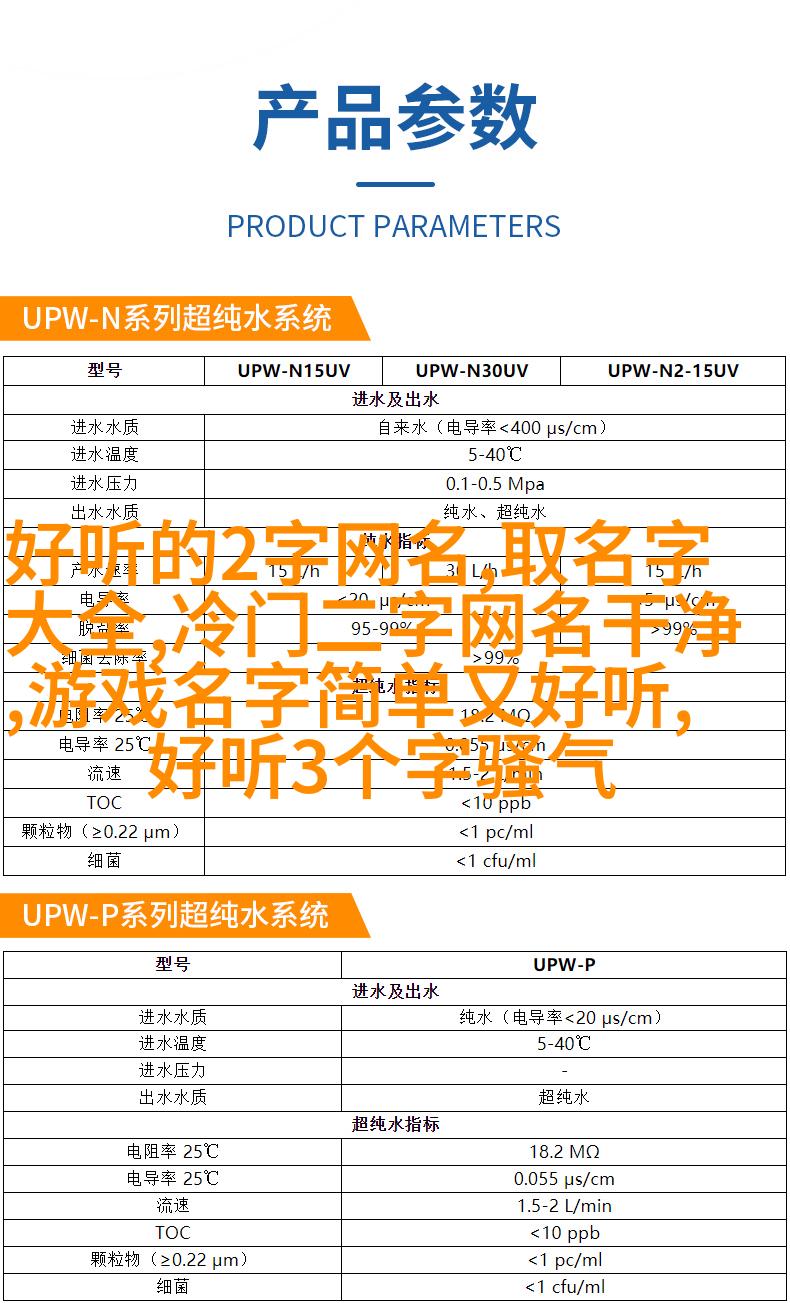 产品参数
PRODUCT PARAMETERS
UPW-N系列超纯水系统
型号 UPW-N15UV UPW-N30UV UPW-N2-15UV
进水及出水
进水水质 自来水（电导率<400 μs/cm）
进水温度 5-40℃
进水压力 0.1-0.5 Mpa
出水水质 纯水、超纯水
纯水指标
好听的2字网名,取名字
产水速率 15 L/h 30 L/h 15 L/h
电导率 <20 μs/cm
大全,冷门二字网名干净
脱盐率 95-99% >99%
细菌去除率 >99%
超纯水指标
,游戏名字简单又好听,
电阻率 25℃ 18.2 MΩ
电导率 25℃ 0.055 μs/cm
好听3个字骚气
流速 1.5-2 L/min
TOC <10 ppb
颗粒物（≥0.22 μm） <1 pc/ml
细菌 <1 cfu/ml
UPW-P系列超纯水系统
型号 UPW-P
进水及出水
进水水质 纯水（电导率<20 μs/cm）
进水温度 5-40℃
进水压力 -
出水水质 超纯水
超纯水指标
电阻率 25℃ 18.2 MΩ
电导率 25℃ 0.055 μs/cm
流速 1.5-2 L/min
TOC <10 ppb
颗粒物（≥0.22 μm） <1 pc/ml
细菌 <1 cfu/ml